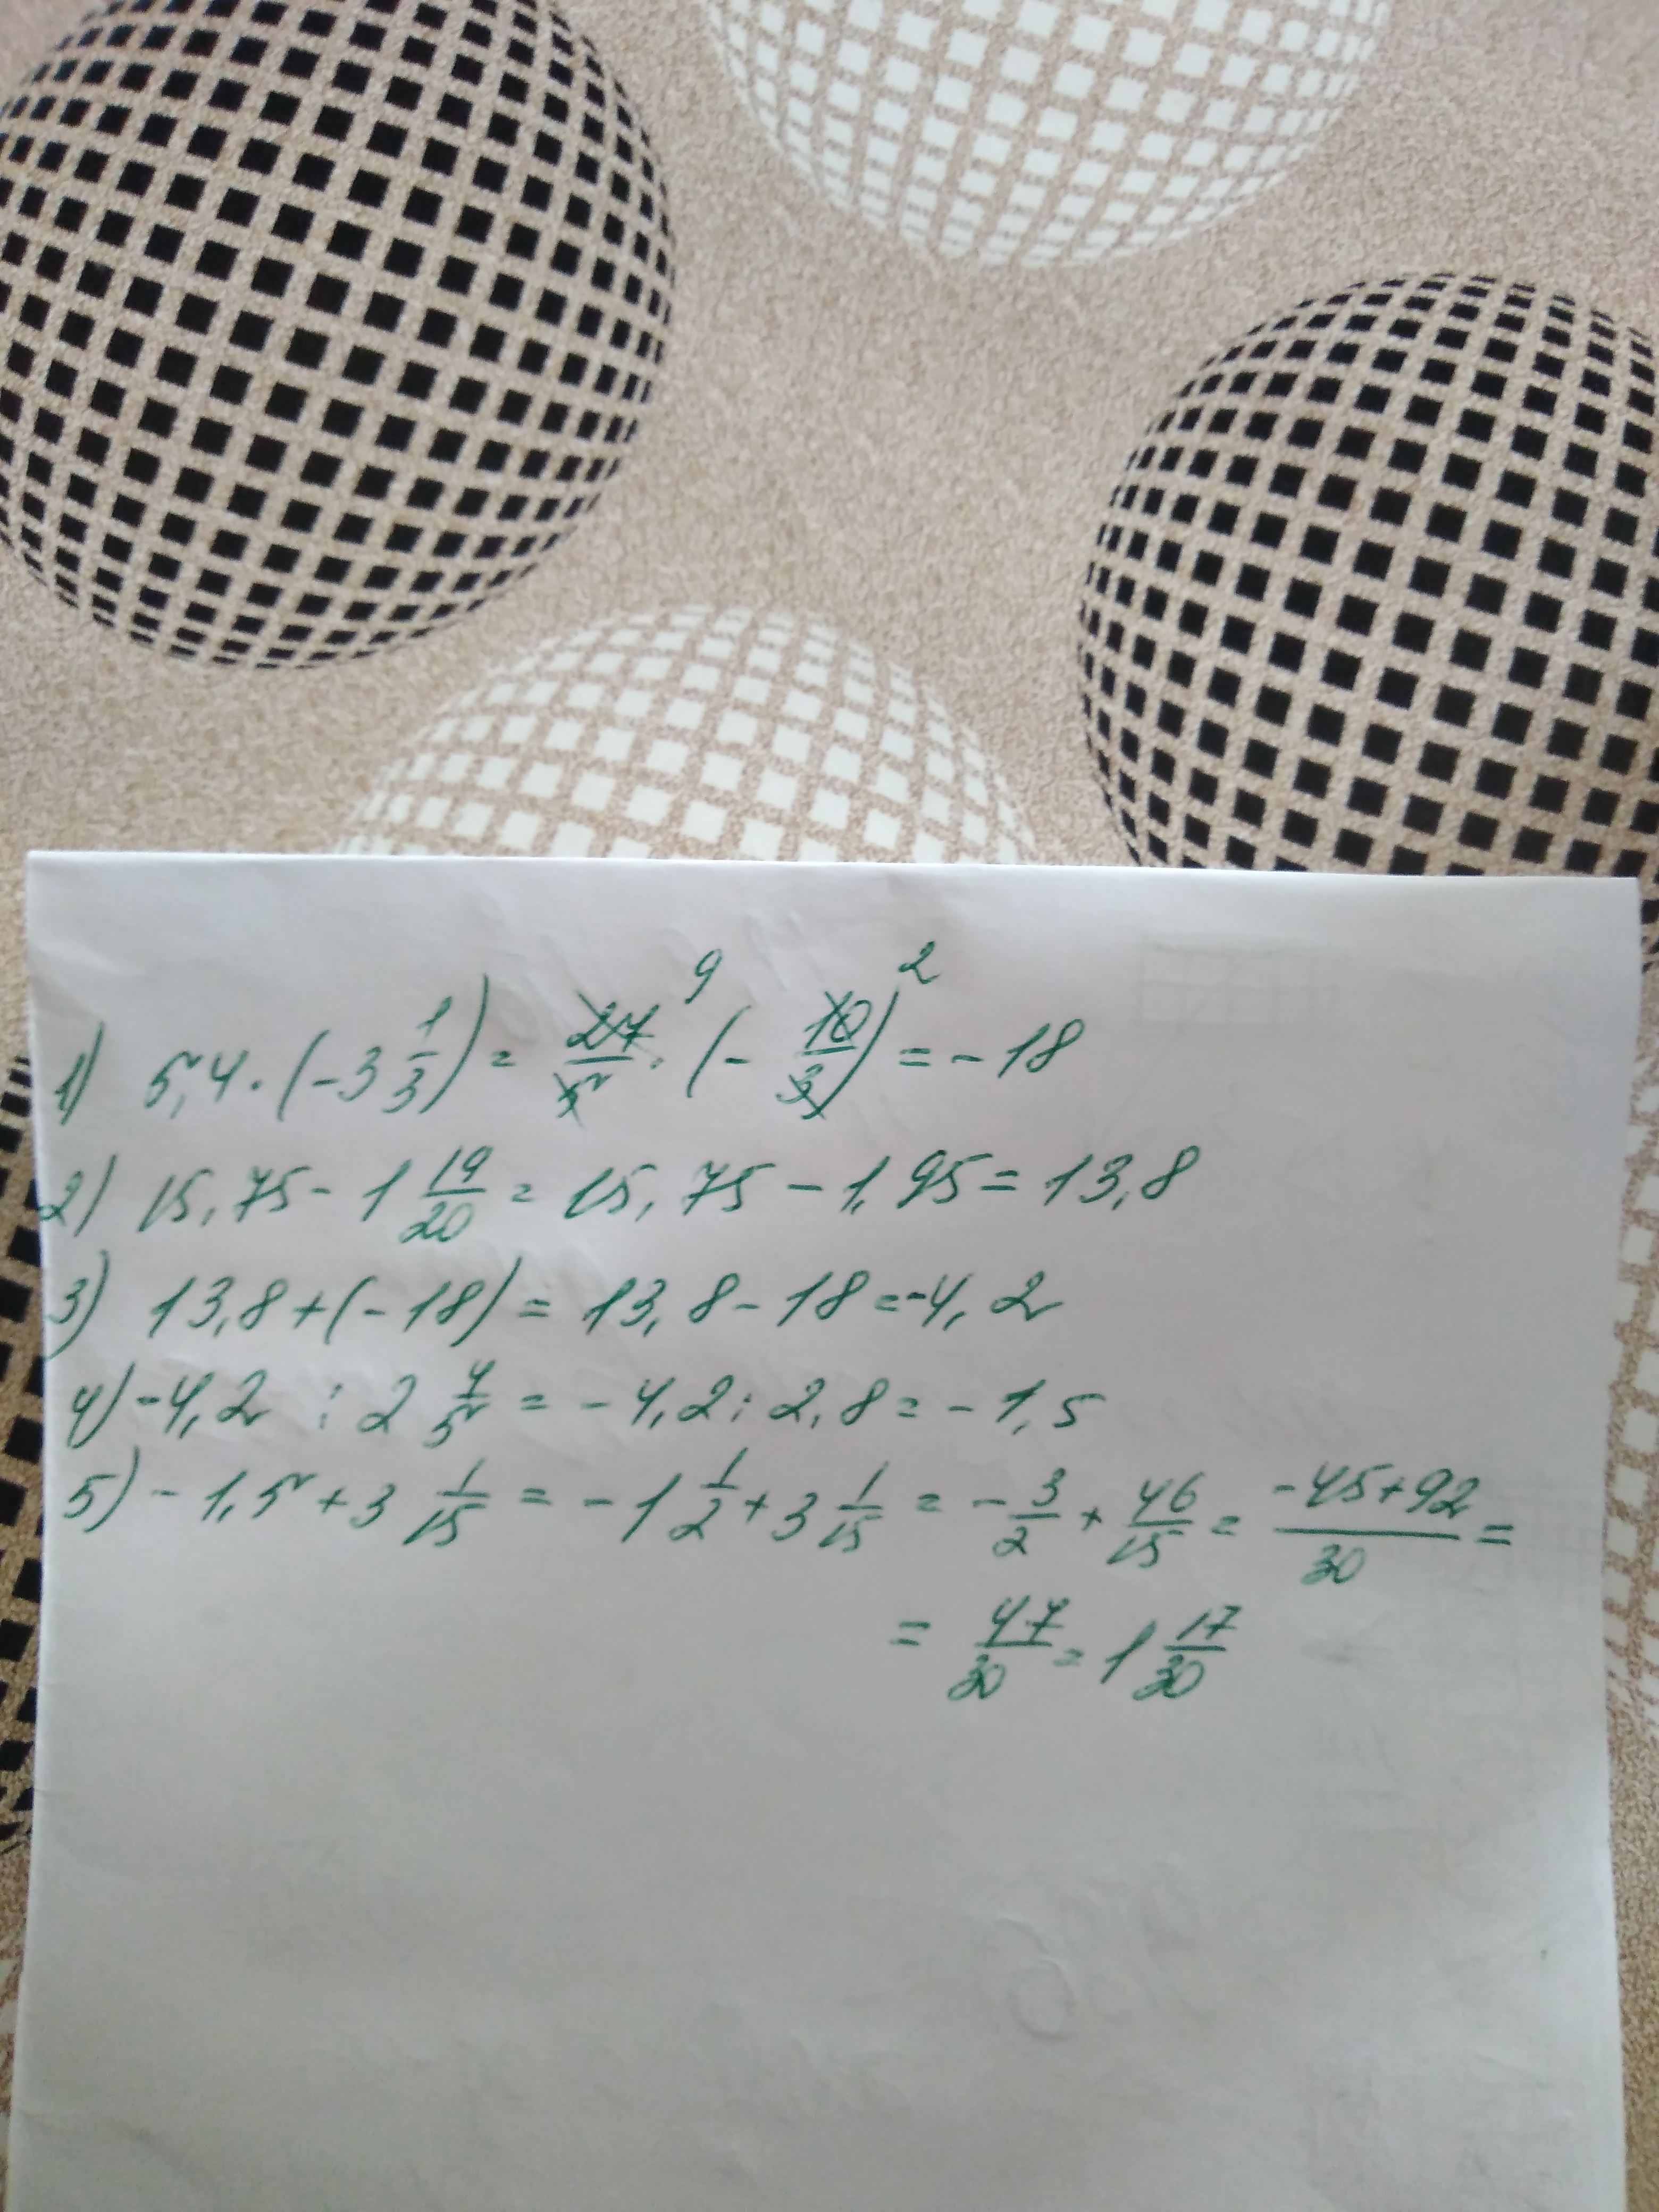 1) 5,4 · (-3 1/3) = 27/5 9 · (- 10/3) 2 = -18
2) 15,75 - 1 19/20 = 15,75 - 1,95 = 13,8
3) 13,8 + (-18) = 13,8 - 18 = -4,2
4) -4,2 : 2 4/5 = -4,2 : 2,8 = -1,5
5) -1,5 + 3 1/15 = -1 1/2 + 3 1/15 = - 3/2 + 46/15 = -45+92/30 =
= 47/30 = 1 17/30